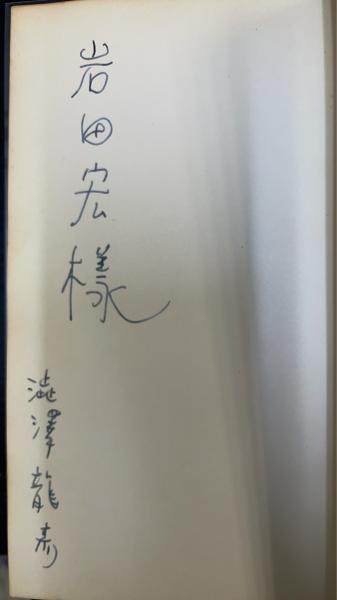 岩田宏様
澁澤龍彥